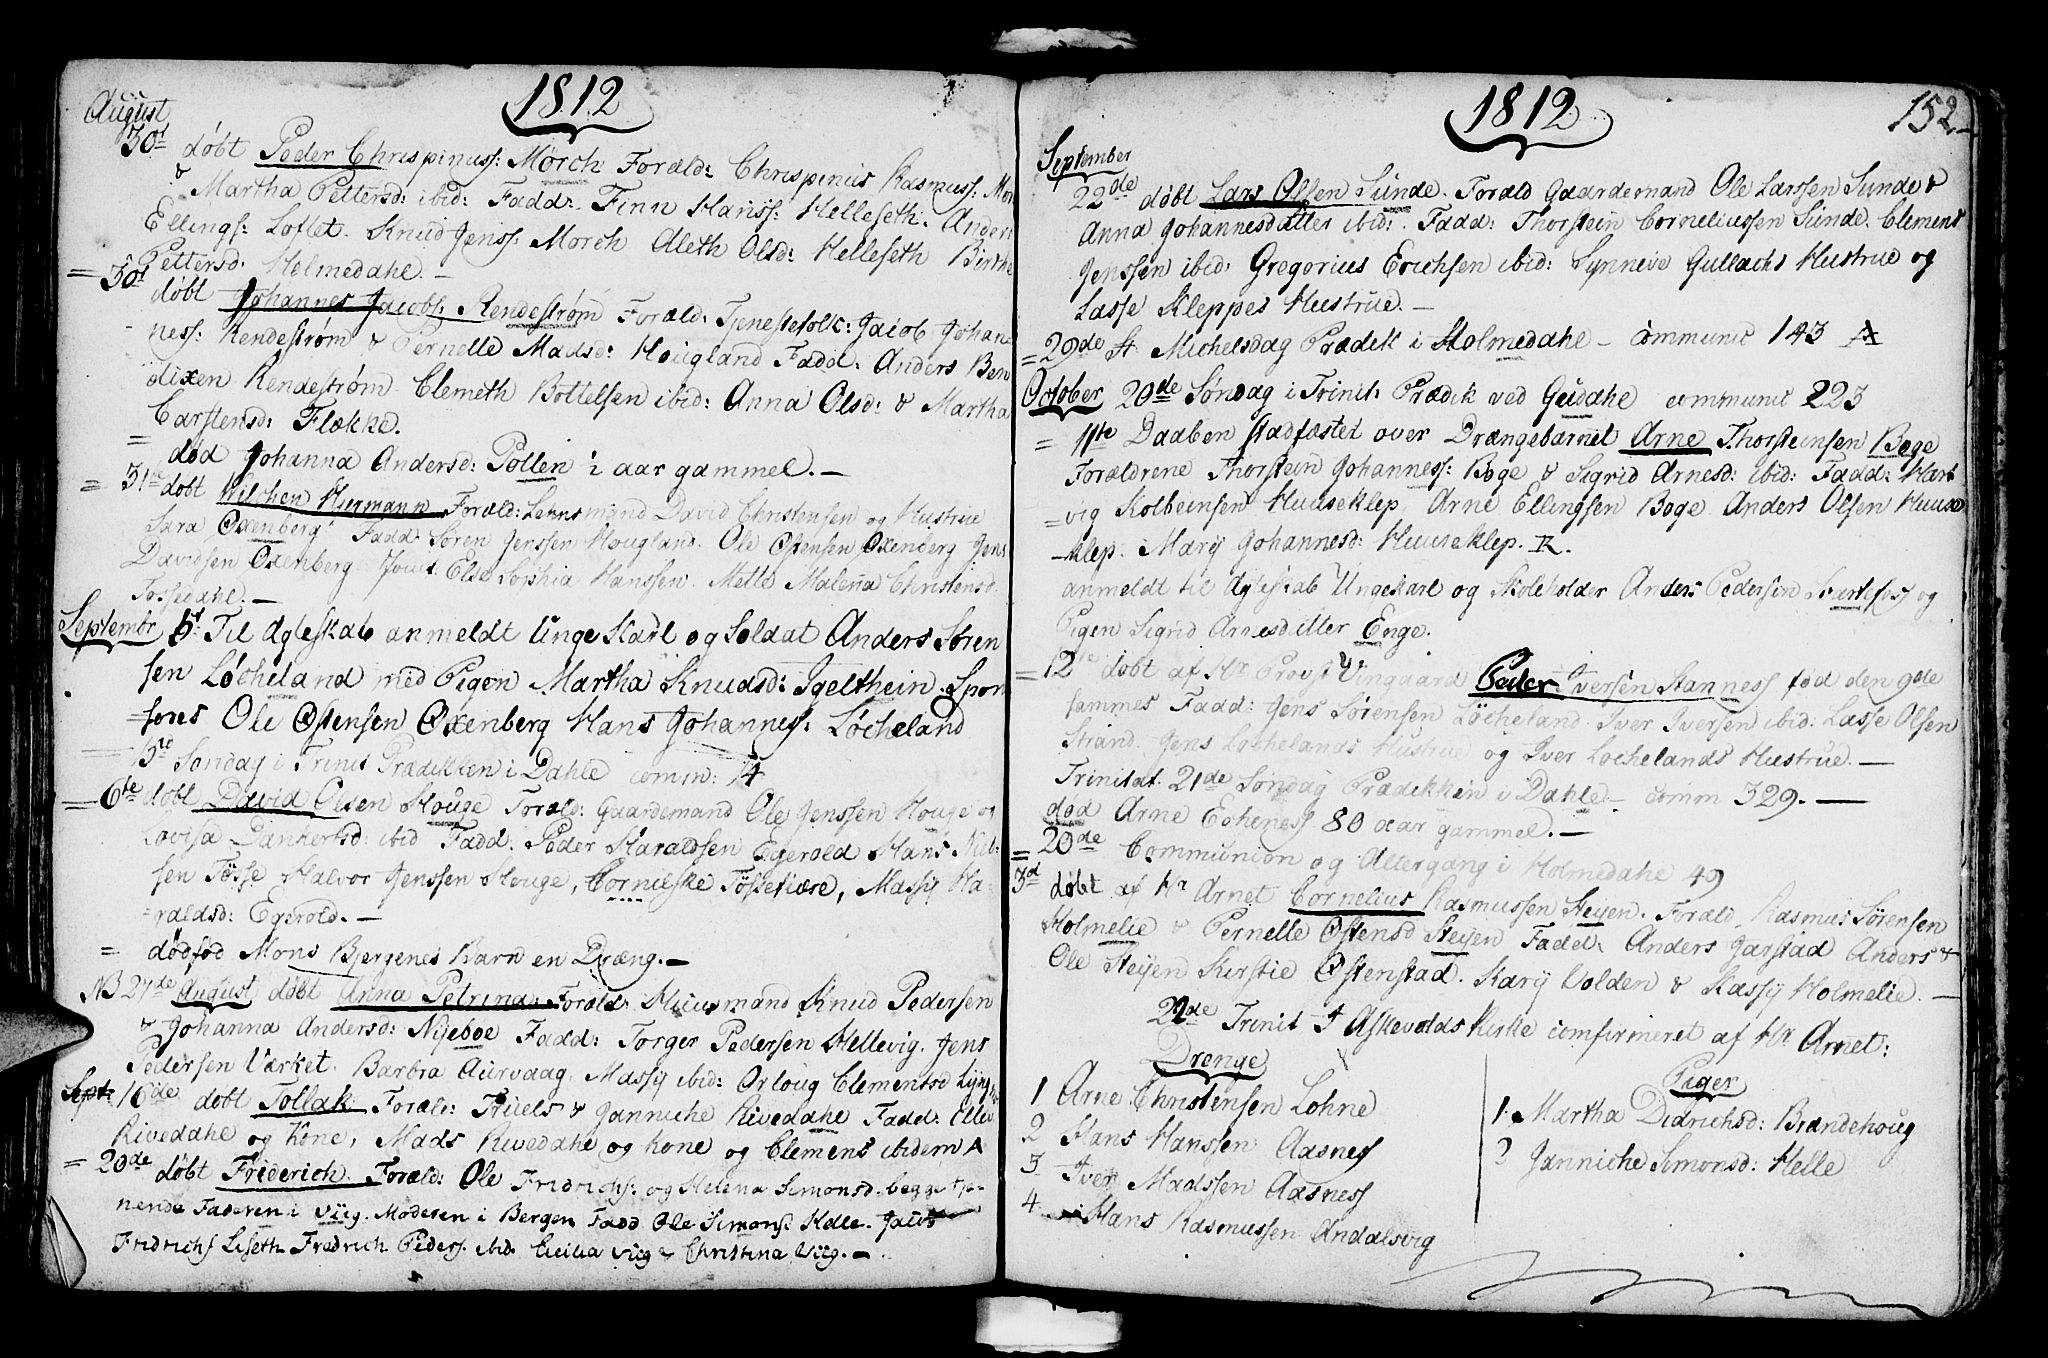 1812
August
30t døbt Peder Chrispinuss: Mørch Foræld: Chrispinus Rasmuss: Mør
& Martha Pettersd: ibid: Fadd: Finn Hanss: Helleseth: Anders
Ellings: Loftet. Knud Jenss: Morch Aleth Olsd: Helleseth Birthe
Pettersd: Holmedahe. —
= 30t døbt Johannes Jacobs: Rendestrøm Foræld: Tjenestefolk: Jacob Johan
ness: Rendestrøm & Pernelle Madsd: Hougland Fadd: Anders Ben
dixen Rendestrøm Clemeth Bottelsen ibid: Anna Olsd: & Martha
Carstensd: Flække.
= død Johanna Andersd: Pollen 1 aar gammel. —
= 31te døbt Wilchen Hiermann Foræld: Lehnsmand David Christensen og Hustrue
Sara Oxenberg Fadd: Søren Jenssen Hougland. Ole Østensen Oxenberg Jens
Davidsen Oxenberg Else Sophia Hanssen. Mette Malena Christensd.
Fossedahe. —
Septembr 5t Til Ægteskab anmeldt Unge Karl og Soldat Anders Søren
sen Løcheland med Pigen Martha Knudsd: Igelthein. Spon
= sores Ole Østensen Oxenberg Hans Johanness: Løcheland
Søndag i Trinit Prædikken i Dahle comm: 14
= 6te døbt David Olsen Houge Foræld: Gaardemand Ole Jenssen Houge og
Lovisa Dankertsd: ibid Fadd: Peder Haraldsen Egerold Hans Niel-
sen Tøsse Halvor Jenssen Houge, Cornelske Tøssefiære, Massij Ha-
= raldsd: Egerold. —
= dødfød Mons Bjergenes Barn en Dræng. —
NB 27de August døbt Anna Petrina Foræld: Huusmand Knud Pedersen
& Johanna Andersd: Nyeboe Fadd: Torger Pedersen Hellevig. Jens
Pedersen Værket. Barbra Aurvaag, Massij ibid: Orloug Clementsd
Sept: 16de døbt Tollak Foræld: Niels & Janniche Rivedahe Fadd: Elles
Rivedahe og Kone, Mads Rivedahe og kone og Clemens ibidem
= 20de døbt Friderich. Foræld: Ole Fridrichs: og Helena Simonsd. begge tje-
nende Faderen i Viig. Moderen i Bergen Fadd Ole Simons: Helle. Jacob
Fridrichs Liseth Fredrich Peders. ibid. Cicilia Viig & Christina Viig. —
1812
152. —
September
22de døbt Lars Olsen Sunde. Foræld Gaardemand Ole Larssen Sunde &
Anna Johannesdatter ibid: Fadd: Thorstein Corneliussen Sunde. Clemens
Jenssen ibid: Gregorius Erichsen ibid: Synneve Gullachs Hustrue og
Lasse Kleppes Hustrue. —
= 29de St. Michelsdag Prædik i Holmedahe — communic 143
October 20de Søndag i Trinit: Prædik ved Guldahe communic 223
= 11te Daaben stadfæstet over Drængebarnet Arne Thorsteinsen Boge
Forældrene Thorstein Johanness: Boge & Sigrid Arnesd: ibid: Fadd: Hart
= vig Kolbeinsen Huuseklep, Arne Ellingsen Boge Anders Olsen Huuse
-klep. Marij Johannesd: Huuseklep.
anmeldt til Ægteskab Ungekarl og Skoleholder Anders Pedersen og
Pigen Sigrid Arnesdatter Enge.
= 12te døbt af Hr Provst Vingaard Peder Iversen Stanness fød den 9de
sammes Fadd: Jens Sørensen Løcheland. Iver Iversen ibid: Lasse Olsen
Strand. Jens Løchelands Hustrue og Iver Løchelands Hustrue. —
Trinitat. 21de Søndag Prædikken i Dahle — comm 329. —
død Arne Echeness 80 aar gammel. —
= 20de Communion og Altergang i Holmedahe 49
3d døbt af Hr Arnet Cornelius Rasmussen Steijen. Foræld Rasmus Sørensen
Holmelie & Pernelle Østensd Steijen Fadd: Anders Jarstad Anders &
Ole Steijen Kirstie Østenstad. Karij Volden & Kassij Holmelie. —
22de Trinit I Askevolds Kirke comfirmeret af Hr Arnet:
Drenge
1 Arne Christensen Lohne
2 Hans Hanssen Aasness
3 Iver Madssen Aasness
4 Hans Rasmussen Andalsvig
Piger
1. Martha Didrichsd: Brandehoug
2 Janniche Simonsd: Helle